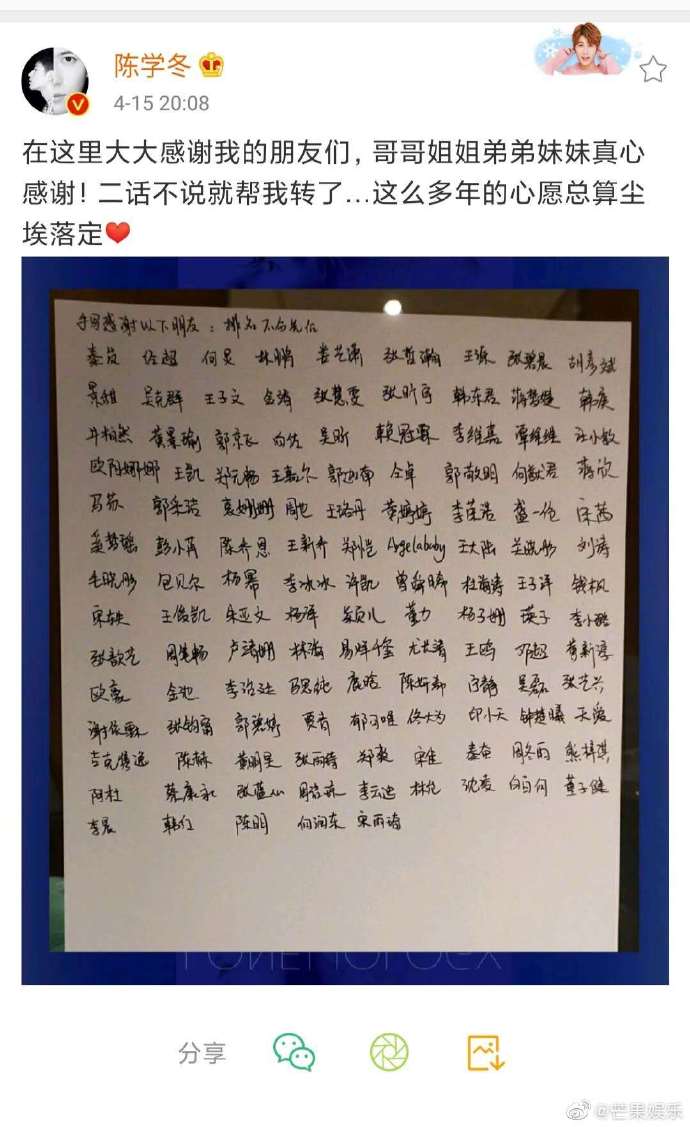 陈学冬
4-15 20:08
在这里大大感谢我的朋友们，哥哥姐姐弟弟妹妹真心
感谢！二话不说就帮我转了...这么多年的心愿总算尘
埃落定❤
手写感谢以下朋友：排名不分先后
秦岚 任超 何炅 林鹏 娄艺潇 张哲瀚 王珞 张碧晨 胡彦斌
景甜 吴克群 王子文 金靖 张慧雯 张昕宇 韩东君 蒋梦婕 韩庚
井柏然 黄景瑜 郭京飞 向佐 吴昕 赖冠霖 李维嘉 谭维维 汪小敏
欧阳娜娜 王凯 郑元畅 王嘉尔 郭迦南 仝卓 郭敬明 何猷君 蒋欣
马苏 郭采洁 袁姗姗 周也 王珞丹 黄婷婷 李荣浩 盛一伦 宋茜
孟梦瑶 彭小苒 陈乔恩 王新乔 郑恺 Angelababy 王大陆 关晓彤 刘涛
毛晓彤 包贝尔 杨幂 李冰冰 许凯 曾舜晞 杜海涛 王子洋 钱枫
宋轶 王俊凯 朱亚文 杨洋 颖儿 董力 杨子姗 瑛子 李小璐
张歆艺 周笔畅 卢靖姗 林海 易烊千玺 尤长靖 王鸥 邓超 黄新淳
欧豪 金池 李治廷 马思纯 鹿晗 陈妍希 宁静 吴磊 张艺兴
谢依霖 张钧甯 郭碧婷 贾青 郁可唯 佟大为 印小天 钟楚曦 天爱
吉克隽逸 陈赫 黄明昊 张雨绮 郑爽 宋佳 秦奋 周冬雨 熊梓淇
阿杜 蔡康永 张蓝心 周 李云迪 林允 沈凌 白百何 董子健
李晨 韩红 陈明 何润东 宋雨琦
分享
@芒果娱乐